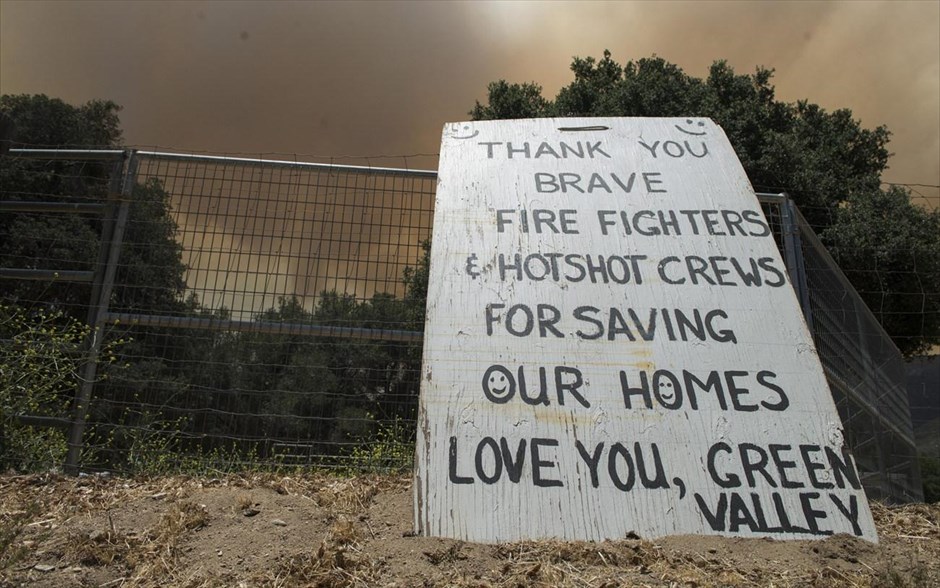 THANK YOU
BRAVE
FIRE FIGHTERS
& HOTSHOT CREWS
FOR SAVING
OUR HOMES
LOVE YOU, GREEN
VALLEY